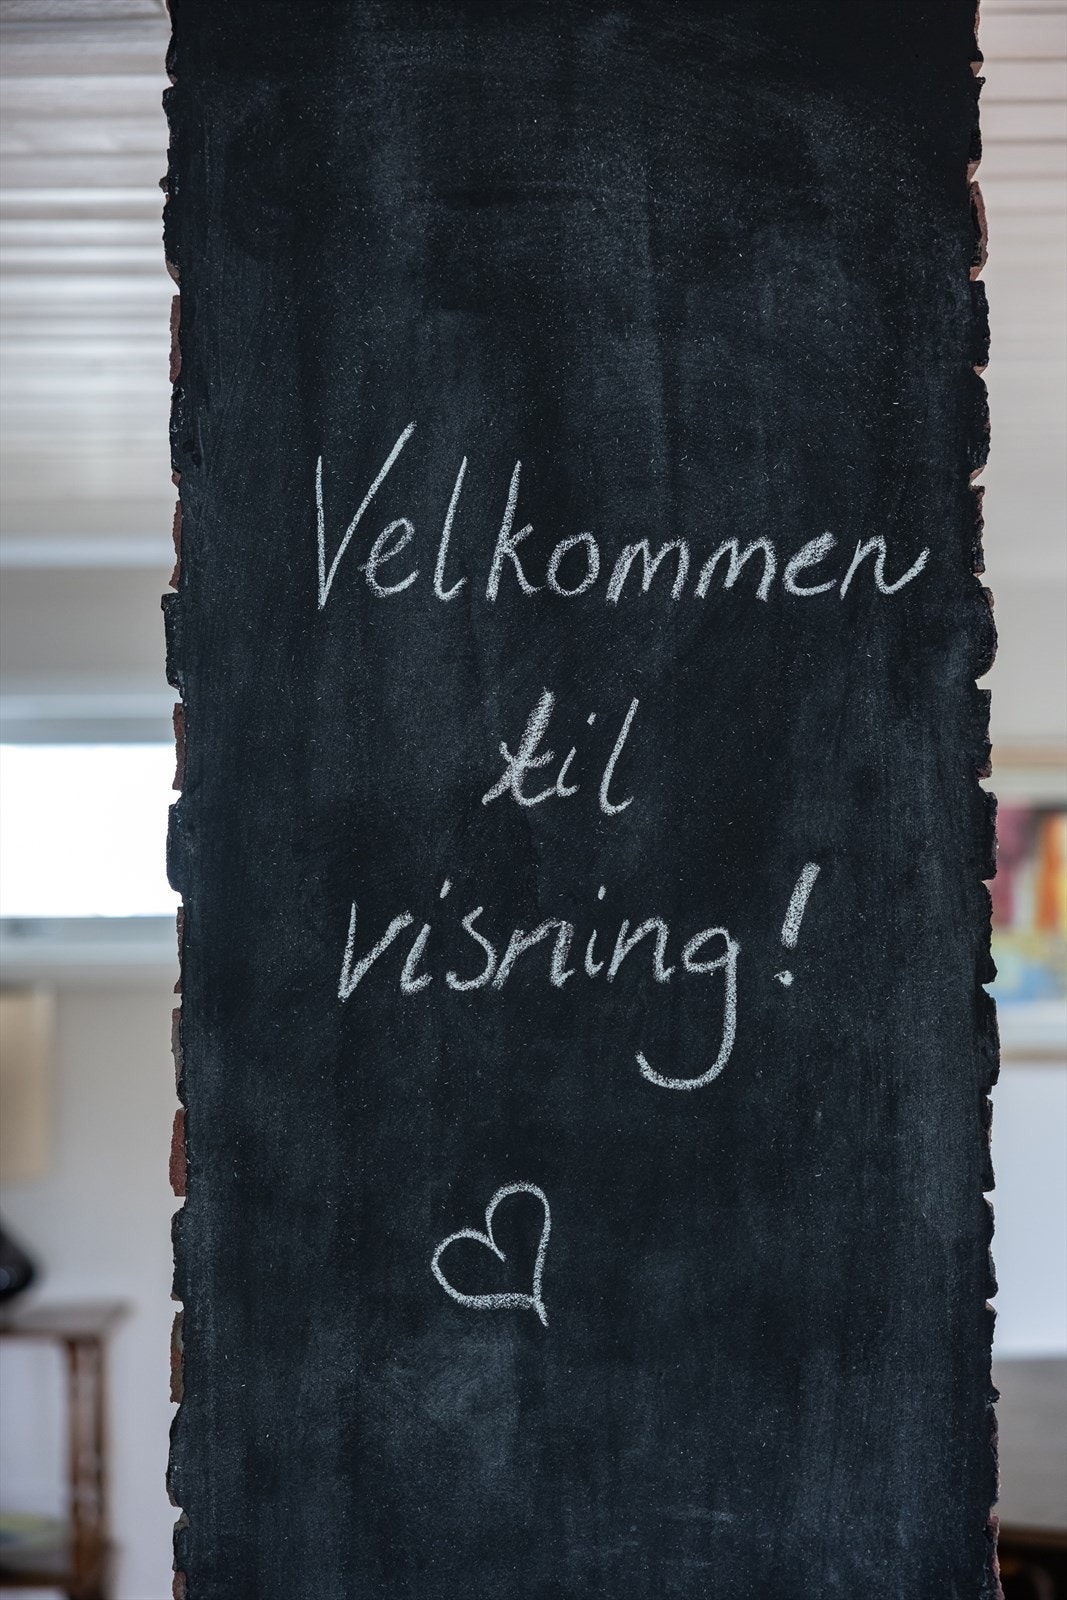 Velkommen
til
visning!